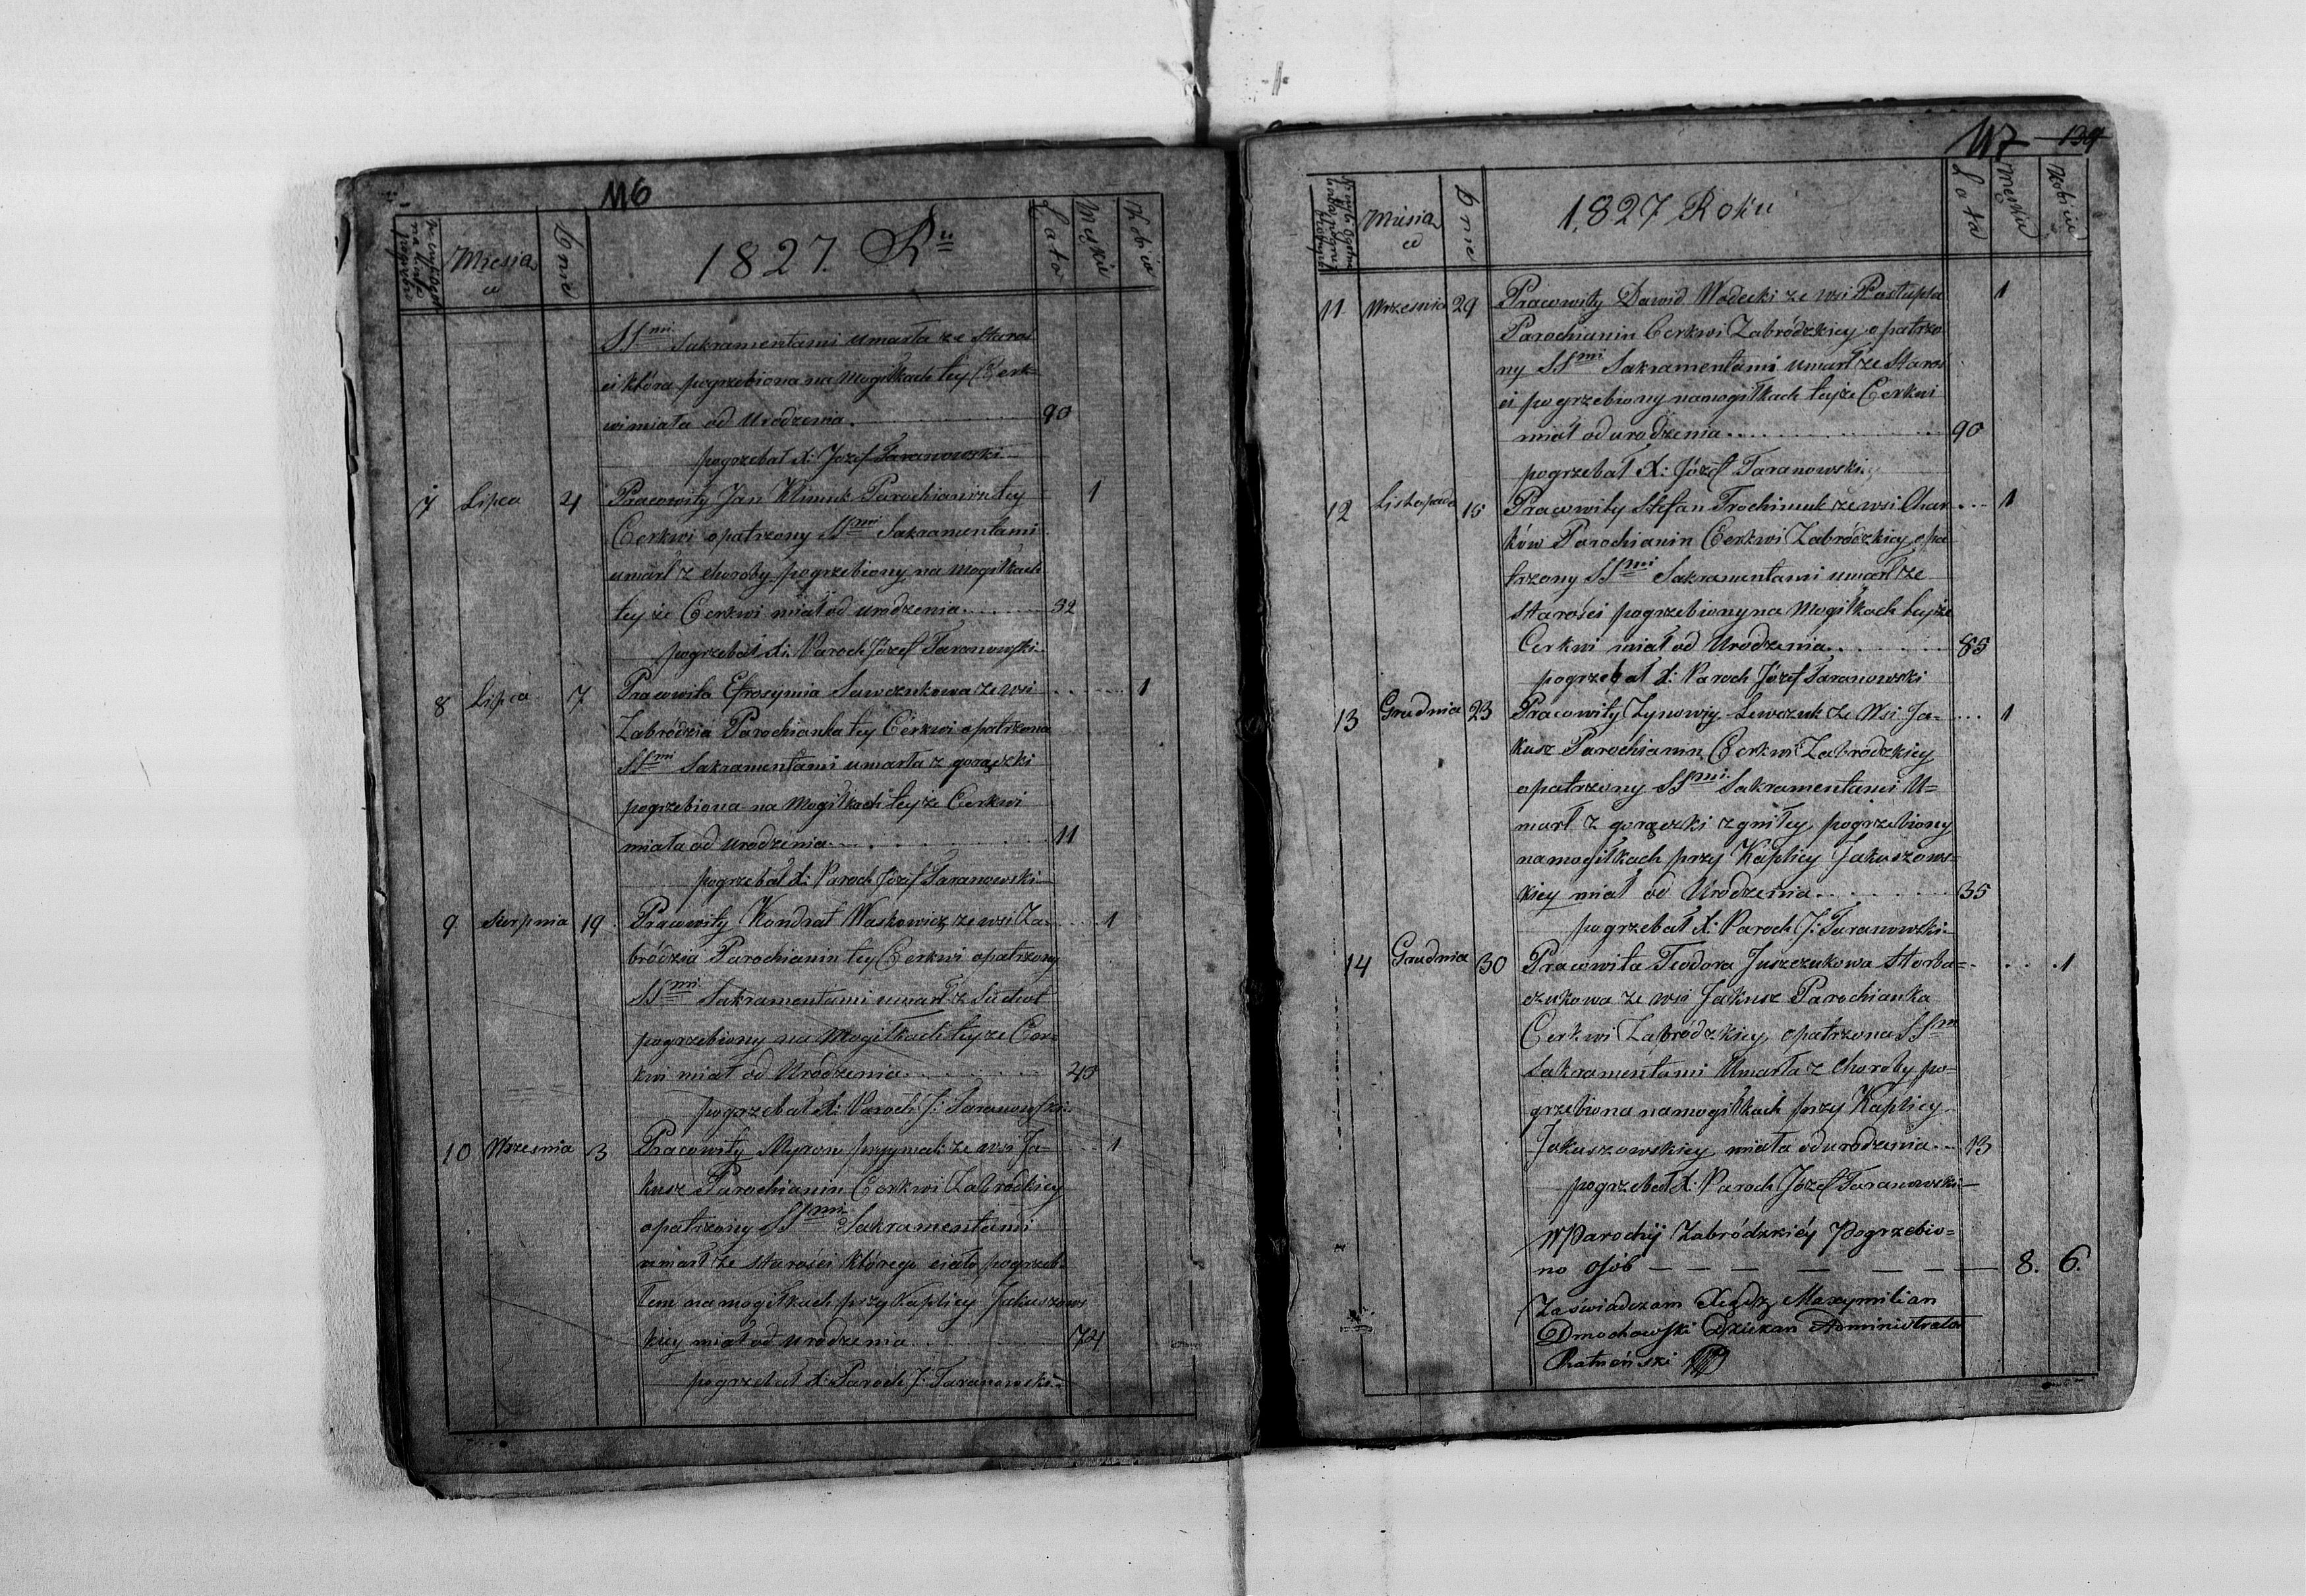 116
Miesiąc
Dnie
1827. Ru
Lata
Męskie
Kobie
SSmi Sakramentami umarła ze staroś
ci która pogrzebiona na Mogiłkach tey Cerk=
wi miała od Urodzenia . 90
pogrzebał X: Jozef Taranowski
7 Lipca 4 Pracowity Jan Klimuk Parochianin tey 1
Cerkwi opatrzony SSmi Sakramentami
umarł z choroby pogrzebiony na Mogiłkach
tey że Cerkwi miał od urodzenia 32
pogrzebał X: Paroch Józef Taranowski
8 Lipca 7 Pracowita Efrosynia Sawczukowa ze wsi 1
Zabródzia Parochianka tey Cerkwi opatrzona
SSmi Sakramentami umarła z gorączki
pogrzebiona na Mogiłkach teyże Cierkwi
miała od urodzenia 11
pogrzebał X: Paroch Józef Taranowski
9 Sierpnia 19 Pracowity Kondrat Waskowicz ze wsi Za= 1
bródzia Parochianin tey Cerkwi opatrzony
SSmi Sakramentami umarł z Suchot
pogrzebiony na Mogiłkach teyże Cer=
kwi miał od Urodzenia 45
pogrzebał X: Paroch J: Taranowski
10 Wrzesnia 3 Pracowity Myron ze wsi Ja= 1
kusz Parochianin Cerkwi Zabrodzkiey
opatrzony SSmi Sakramentami
umarł ze starości którego ciało pogrzeb=
łem na mogiłkach przy Kaplicy Jakuszows
kiey miał od urodzenia 74
pogrzebał X: Paroch J: Taranowski
117 134
Miesiąc
Dnie
1827 Roku
Lata
Męskie
Kobie
11 Wrzesnia 29 Pracowity Dawid Wodecki ze wsi Zastupla 1
Parochianin Cerkwi Zabródzkiey opatrzo
ny SSmi Sakramentami umarł ze staroś
ci pogrzebiony na mogiłkach teyże Cerkwi
miał od urodzenia 90
pogrzebał X: Józef Taranowski
12 Listopada 15 Pracowity Stefan Trochimuk ze wsi Char 1
ków Parochianin Cerkwi Zabródzkiey opa
trzony SSmi Sakramentami umarł ze
starości pogrzebiony na Mogiłkach teyże
Cerkwi miał od Urodzenia 85
pogrzebał X: Paroch Józef Taranowski
13 Grudnia 23 Pracowity Zynowiy Lewczuk ze Wsi Ja= 1
kusz Parochianin Cerkwi Zabrodzkiey
opatrzony SSmi Sakramentami U=
marł z gorączki zgniłey pogrzebiony
na mogiłkach przy Kaplicy Jakuszows=
kiey miał od Urodzenia 35
pogrzebał X: Paroch J: Taranowski
14 Grudnia 30 Pracowita Teodora Juszczukowa Horba= 1
czukowa ze wsi Jakusz Parochianka
Cerkwi Zabródzkiey opatrzona SSm
Sakramentami Umarła z choroby po=
grzebiona na mogiłkach przy Kaplicy
Jakuszowskiey miała od urodzenia 13
pogrzebał X: Paroch Józef Taranowski
W Parochij Zabródzkiéy Pogrzebio=
no osób 8. 6.
Zaświadczam Xiądz Maxymilian
Dmochowski Dziekan Administrator
Ratneński